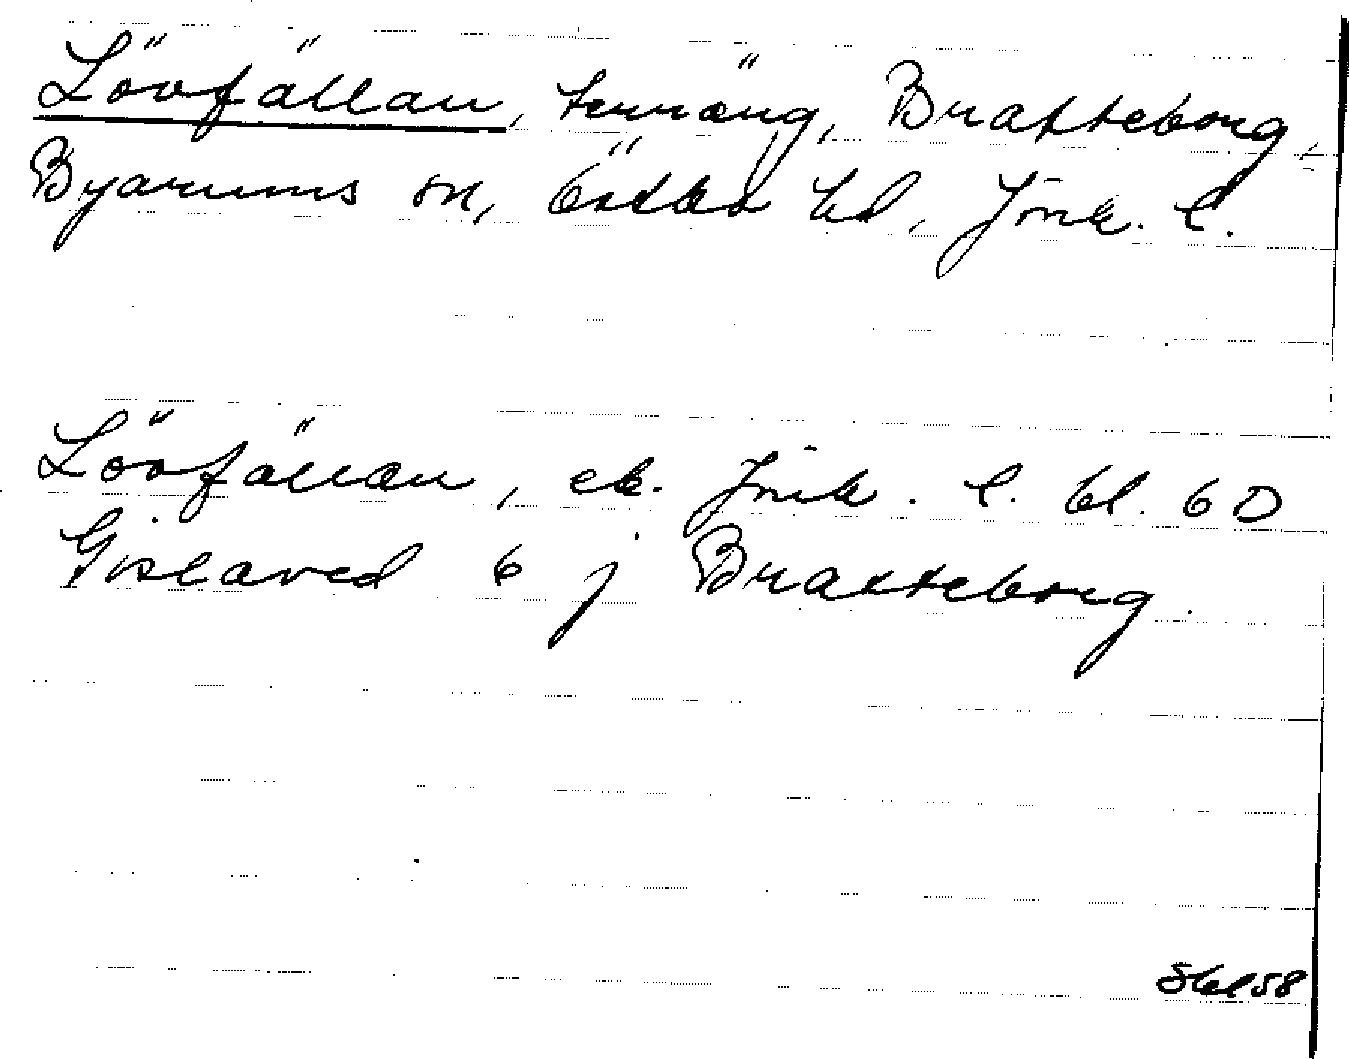 Lövfällan, terräng, Bratteborg,
Byarums sn, Östbo hd, Jönk. l.
Lövfällan, ek. Jönk. l. bl. 60
Gislaved 6 j Bratteborg.